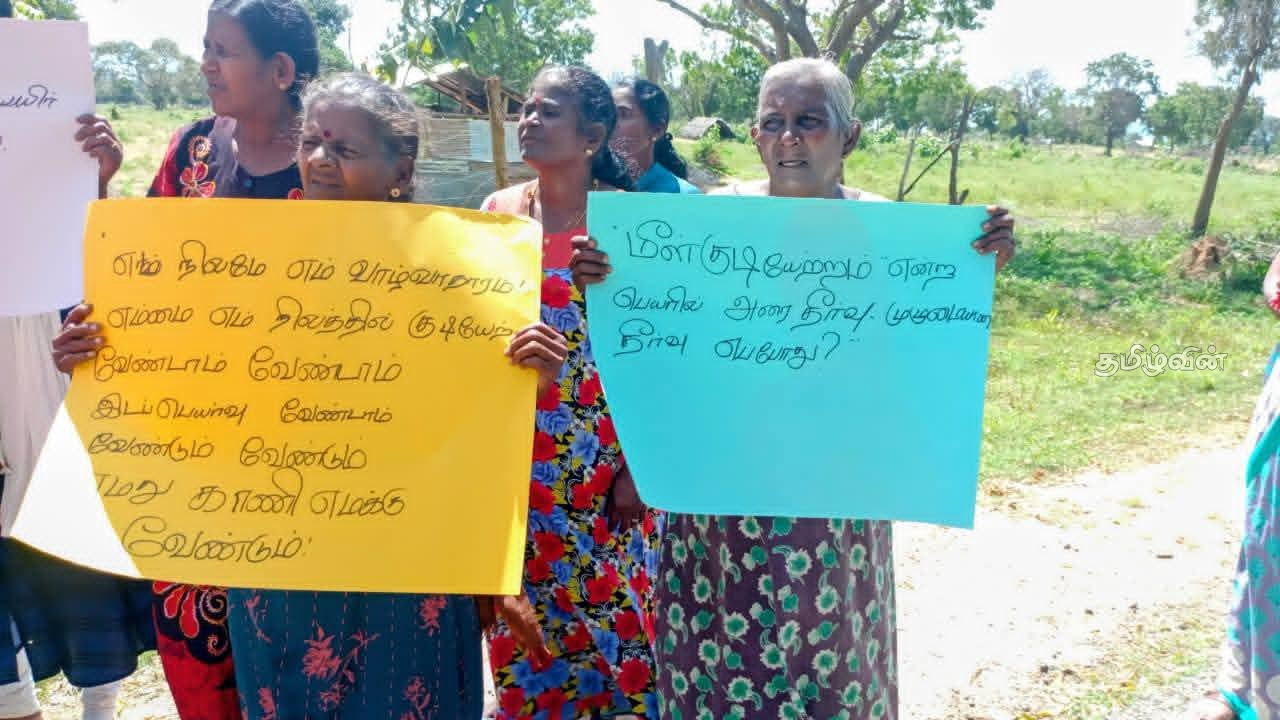 "எம் நிலமே எம் வாழ்வாதாரம்'
எம்மை எம் நிலத்தில் குடியேற்
வேண்டாம் வேண்டாம்
இடப்பெயர்வு வேண்டாம்
வேண்டும் வேண்டும்
எமது காணி எமக்கு
வேண்டும்!
"மீள்குடியேற்றம்" என்ற
பெயரில் அரை தீர்வு. முழுமையான
தீர்வு எப்போது?"
தமிழ்வின்